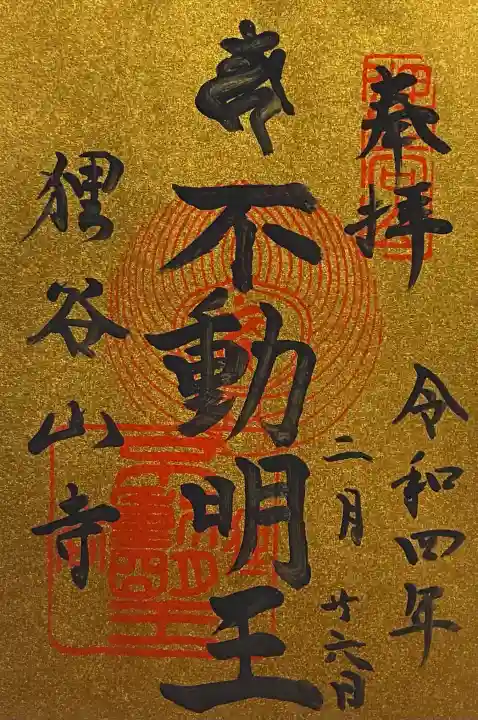 奉拝
令和四年
二月廿六日
不動明王
狸谷山寺